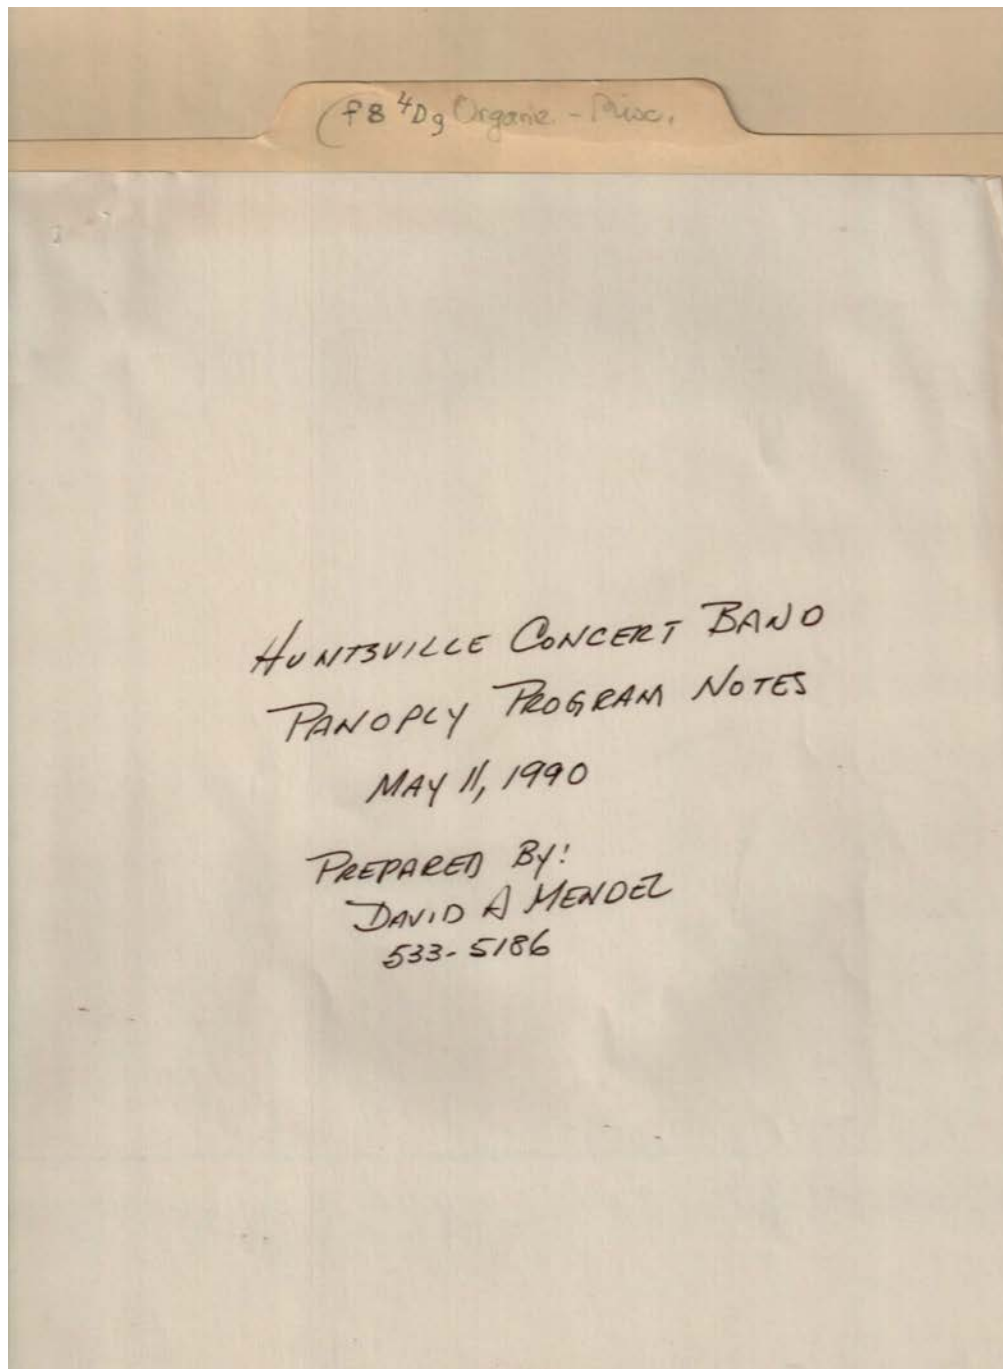 f8 4Dg Organiz. - Misc.
HUNTSVILLE CONCERT BAND
PANOPLY PROGRAM NOTES
MAY 11, 1990
PREPARED BY:
DAVID A MENDEZ
533-5186